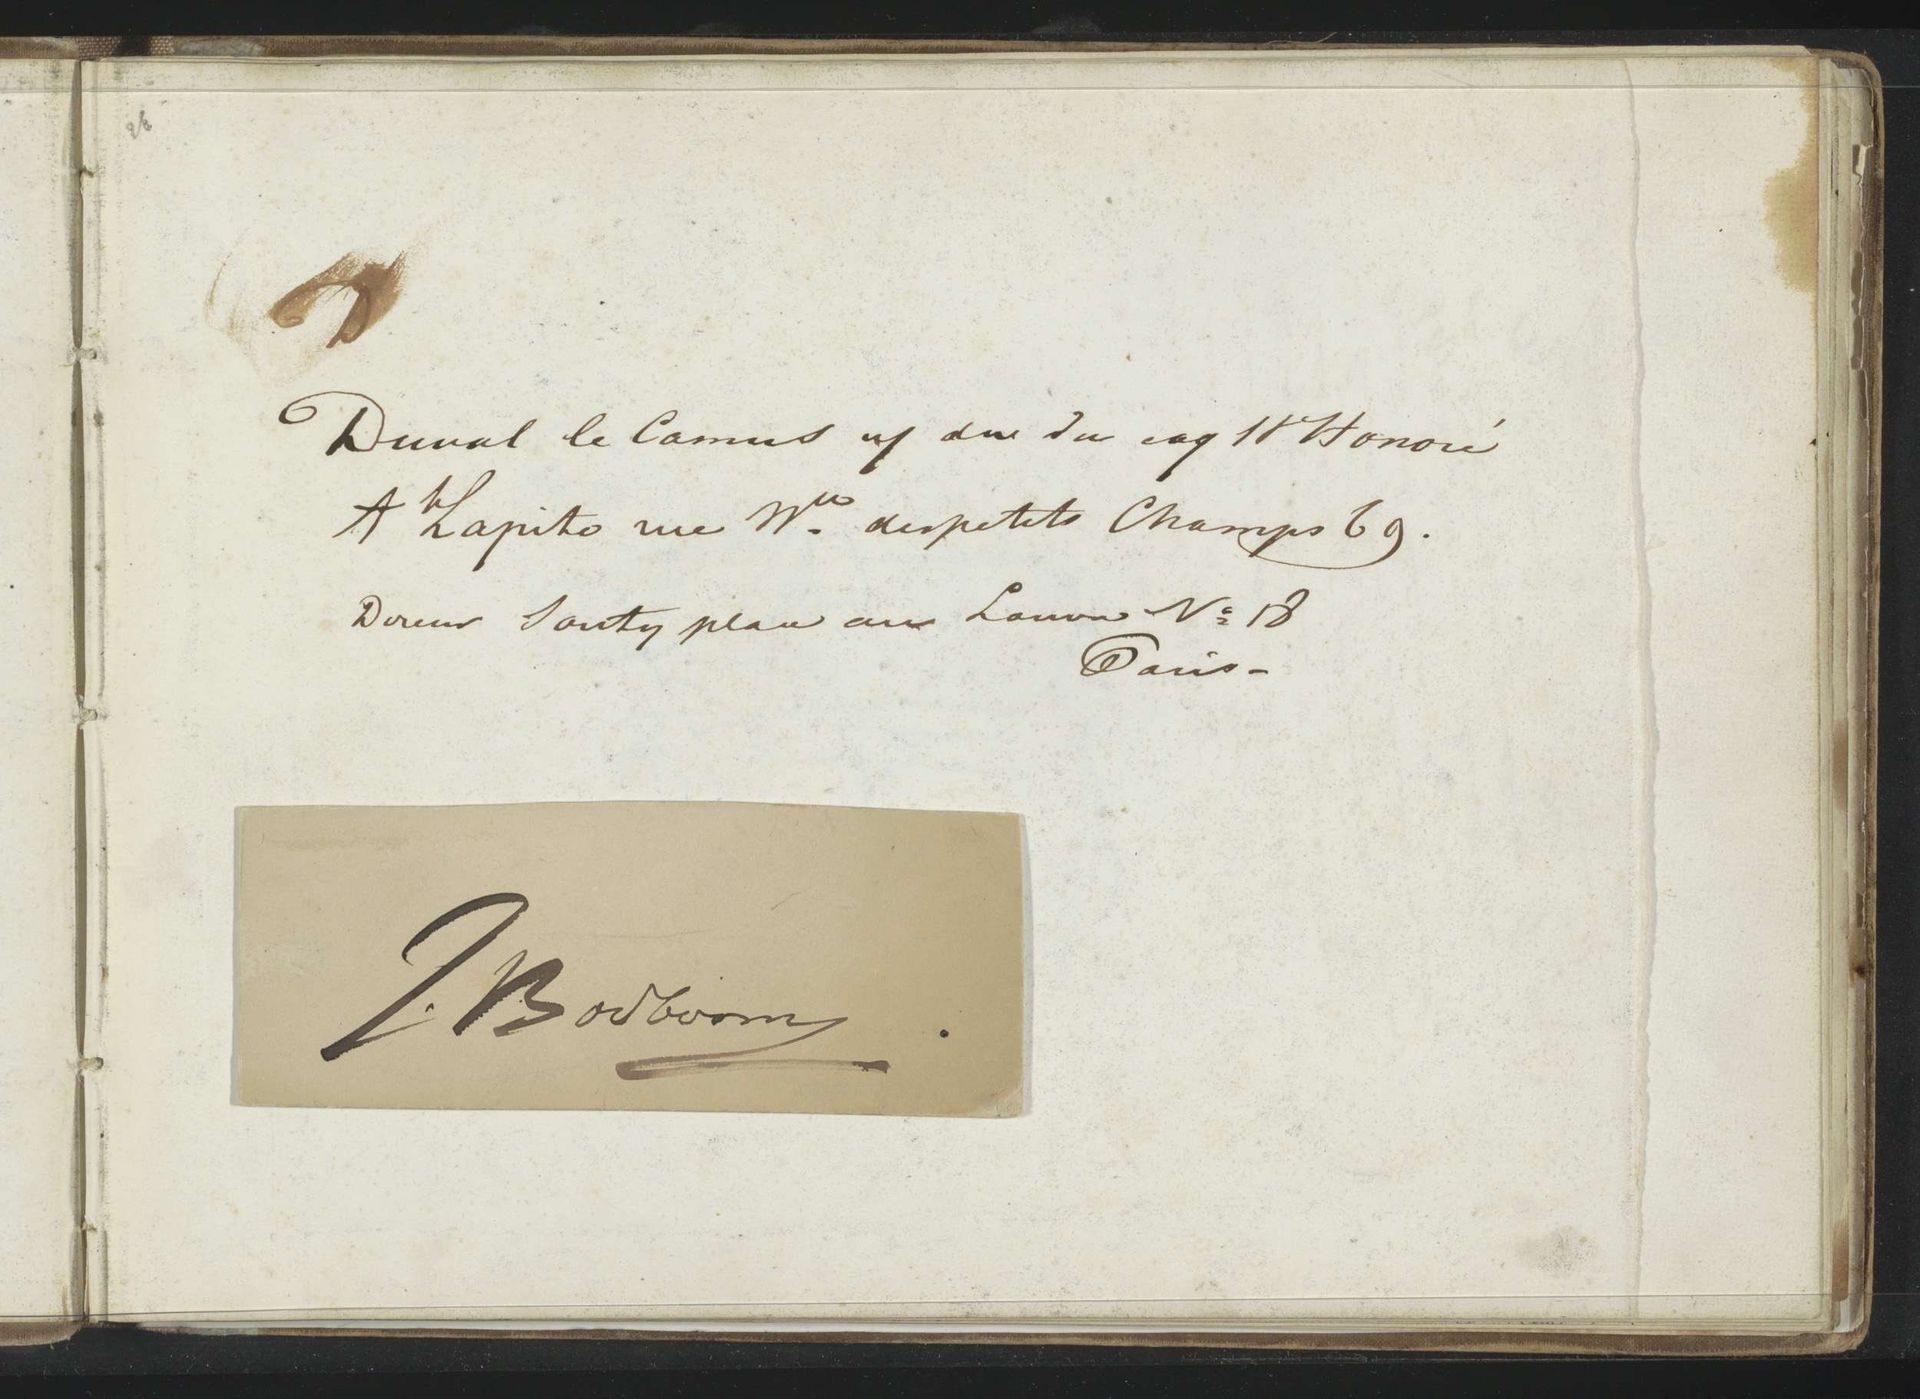 26
Duval le Camus rue du coq St Honoré
Ate Lapito rue Nve. des petits Champs 69.
Doreur Souty place au Louvre No 18
Paris-
J. Bosboom